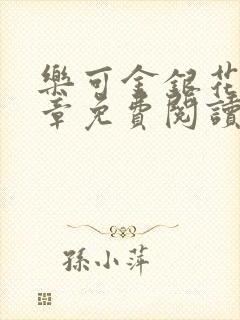 樂可金銀花
章免費閱讀
孫小萍